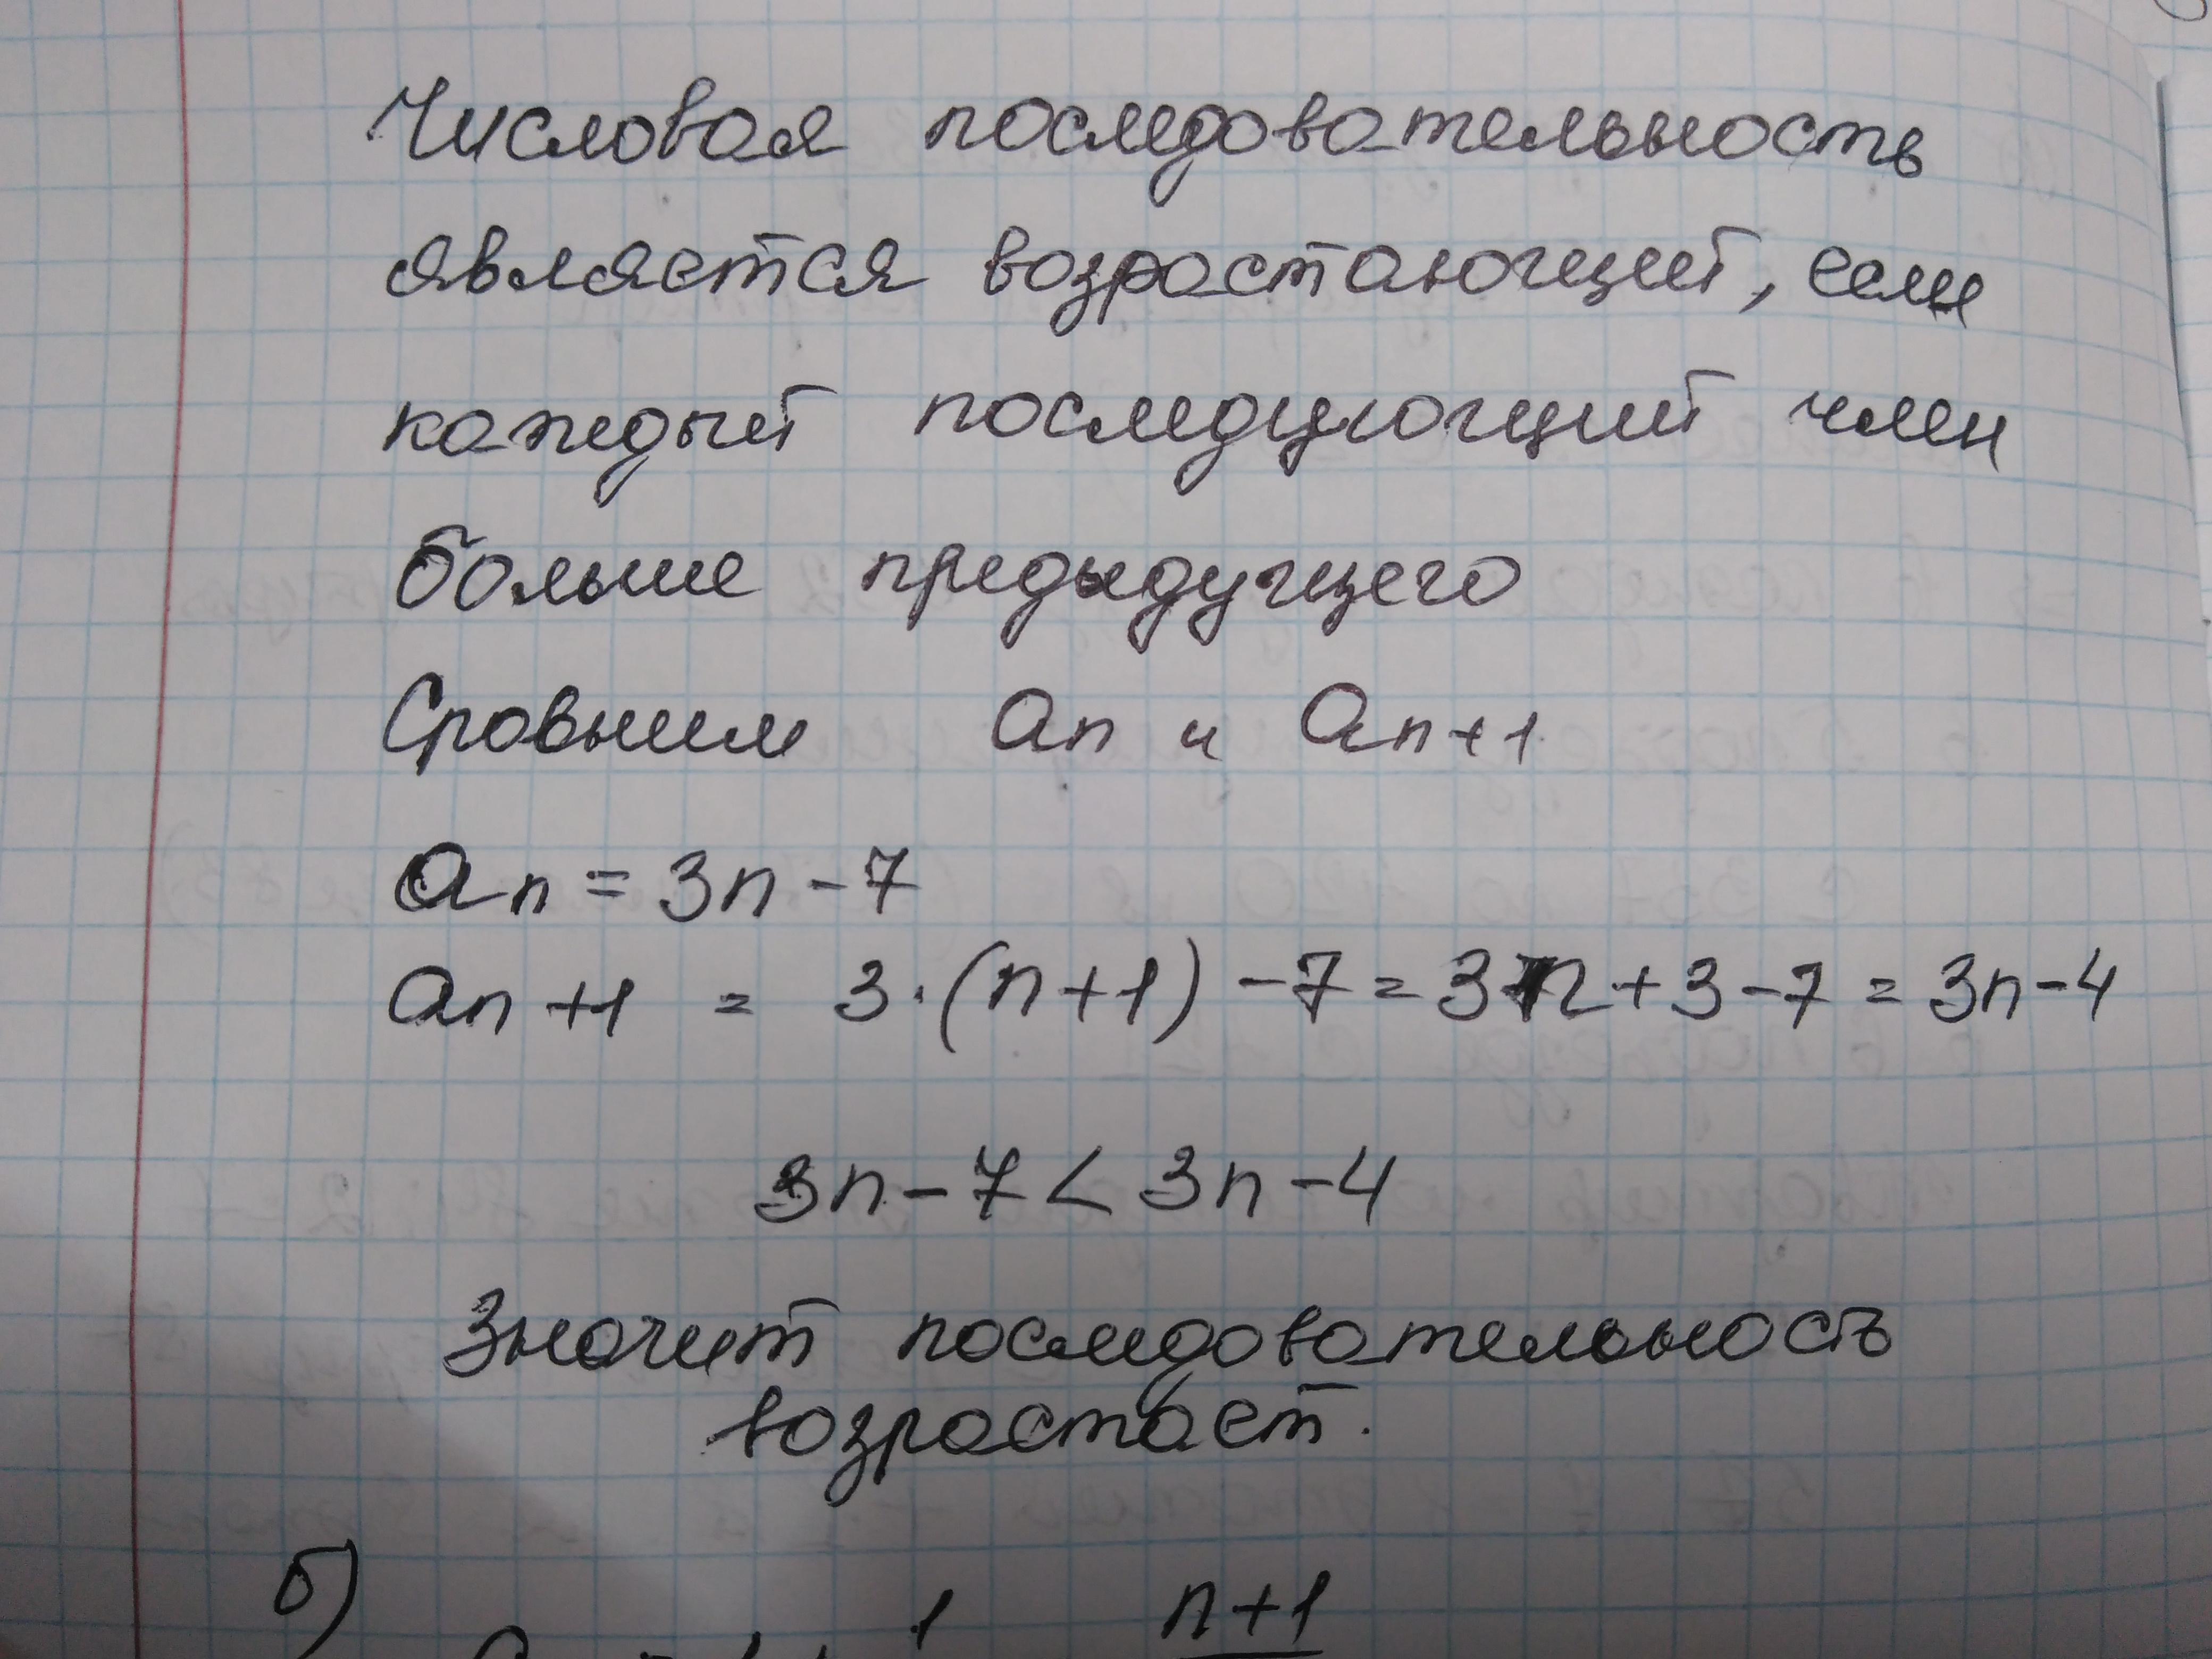 Числовая последовательность
является возрастающей, если
каждый последующий член
больше предыдущего
Сравним an и an+1
an = 3n - 7
an+1 = 3·(n+1) - 7 = 3n + 3 - 7 = 3n - 4
3n - 7 < 3n - 4
Значит последовательность
возрастает.
б)
1 n+1